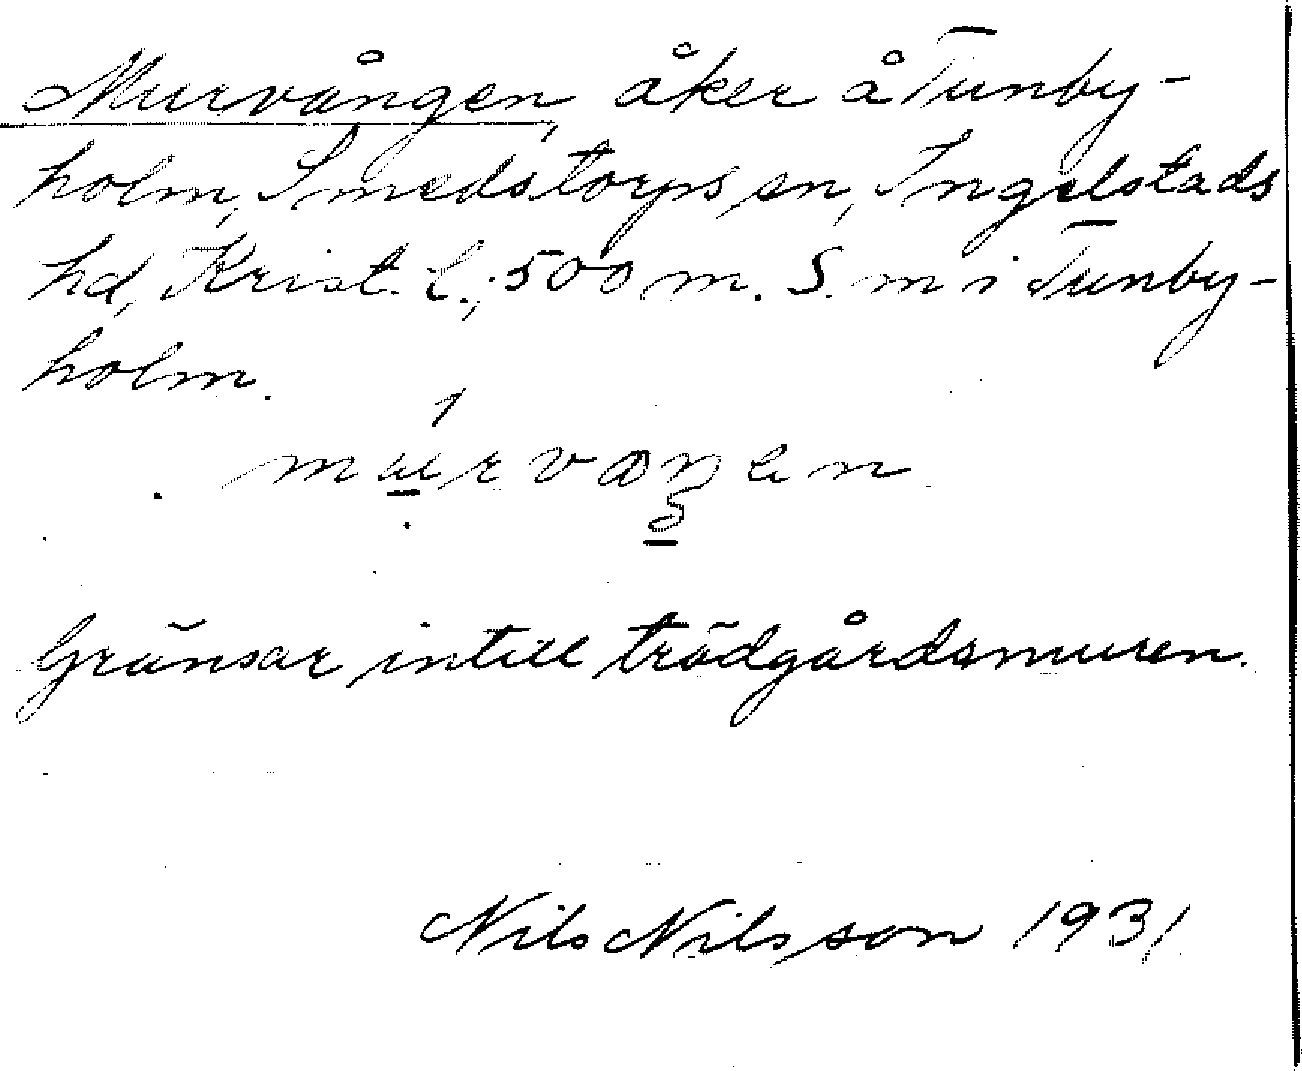 Murvången, åker å Tunby-
holm, Smedstorps sn, Ingelstads
hd, Krist. l.; 500 m. S. m i Tunby-
holm.
Gränsar intill trädgårdsmuren.
Nils Nilsson 1931